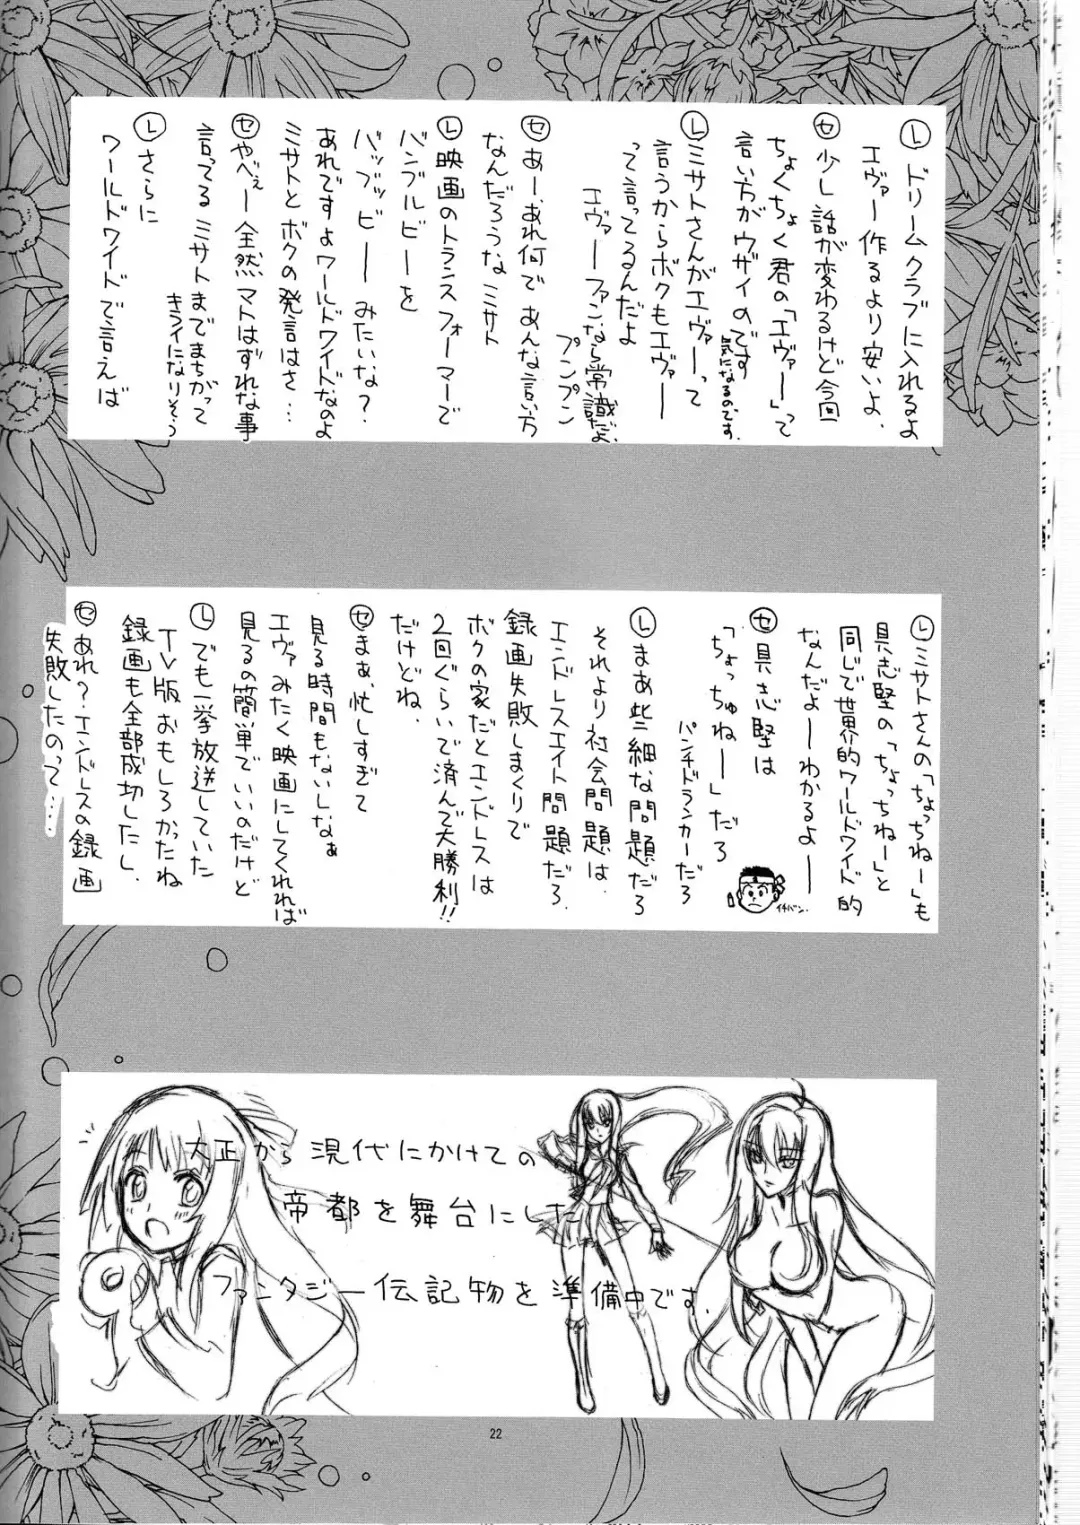 Ⓛドリームクラブに入れるよ
エヴァー作るより安いよ、
㋝少し話が変わるけど今回
ちょくちょく君の「エヴァー」って
言い方がウザイのです
気になるのです。
Ⓛミサトさんがエヴァーって
言うからボクもエヴァー
って言ってるんだよ
エヴァーファンなら常識だよ、
プンプン
㋝あー、あれ何であんな言い方
なんだろうなミサト
Ⓛ映画のトランスフォーマーで
バンブルビーを
バッブッビーみたいな?
あれですよワールドワイドなのよ
ミサトとボクの発言はさ…
㋝やべぇー全然マトはずれな事
言ってるミサトまでまちがって
キライになりそう
Ⓛさらに
ワールドワイドで言えば
Ⓛミサトさんの「ちょっちねー」も
具志堅の「ちょっちねー」と
同じで世界的ワールドワイド的
なんだよーわかるよー
㋝具志堅は
「ちょっちゅねー」だろ
イチバン.
パンチドランカーだろ
Ⓛまあ些細な問題だろ
それより社会問題は、
エンドレスエイト問題だろ、
録画失敗しまくりで
ボクの家だとエンドレスは
2回ぐらいで済んで大勝利!!
だけどね、
㋝まぁ、忙しすぎて
見る時間もないしなぁ
エヴァみたく映画にしてくれれば
見るの簡単でいいのだけど
Ⓛでも一挙放送していた
TV版おもしろかったね
録画も全部成功したし、
㋝あれ?エンドレスの録画
失敗したのって….
大正から現代にかけての
帝都を舞台にした
ファンタジー伝記物を準備中です.
22